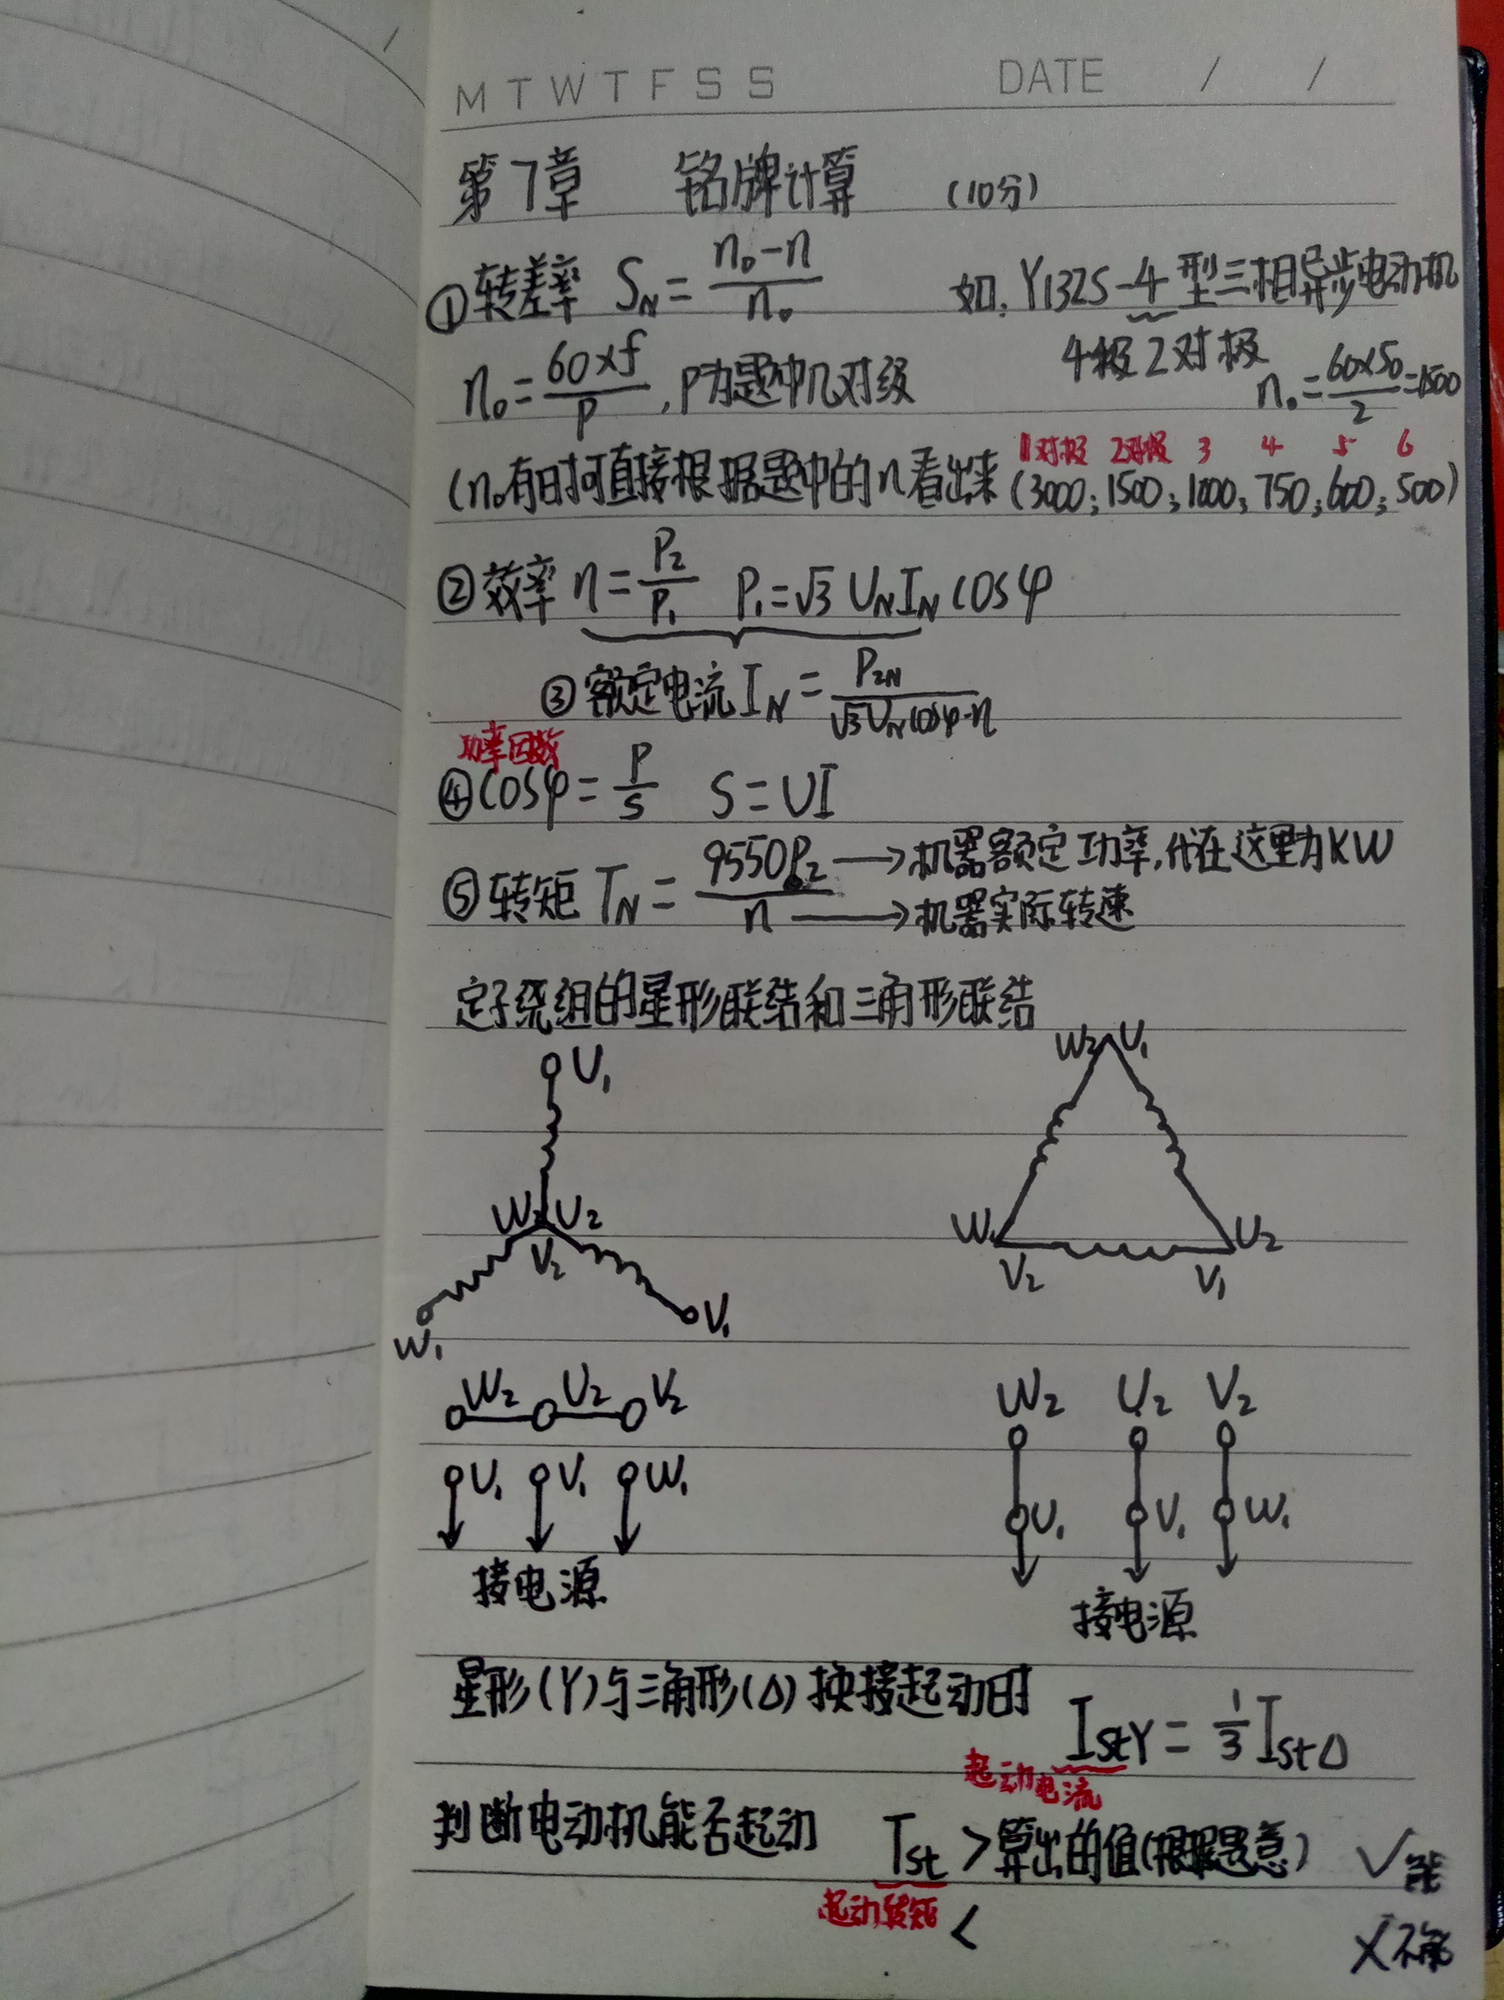 M T W T F S S DATE / /
第7章 铭牌计算 (10分)
①转差率 S_N = (n₀-n)/n₀ 如: Y132S-4型三相异步电动机
4极 2对极
n₀ = 60×f/P, P为题中几对级 n₀ = 60×50/2 = 1500
1对极 2对极 3 4 5 6
(n₀有时可直接根据题中的n看出来 (3000; 1500; 1000; 750; 600; 500)
②效率 η = P₂/P₁ P₁ = √3 U_N I_N cosφ
③额定电流 I_N = P₂N/(√3 U_N cosφ·η)
功率因数
④cosφ = P/S S = UI
⑤转矩 T_N = 9550P₂/n
P₂→机器额定功率,代在这里为KW
n→机器实际转速
定子绕组的星形联结和三角形联结
U₁
W₂ U₂
V₂
W₁ V₁
W₂ U₁
W₁ U₂
V₂ V₁
W₂ U₂ V₂
U₁ V₁ W₁
接电源
W₂ U₂ V₂
U₁ V₁ W₁
接电源
星形(Y)与三角形(Δ)换接起动时 I_stY = 1/3 I_stΔ
起动电流
判断电动机能否起动 T_st > 算出的值(根据题意) √能
起动转矩 < ×不能